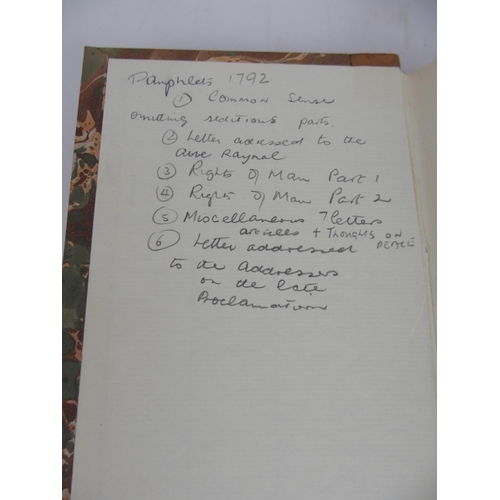 Pamphlets 1792
① Common Sense
omitting seditious parts.
② Letter adressed to the
Abbe Raynal
③ Rights of Man Part 1
④ Rights of Man Part 2
⑤ Miscellaneous 7 letters
articles + THOUGHTS ON
PEACE
⑥ Letter addressed
to the Addressers
on the late
Proclamation